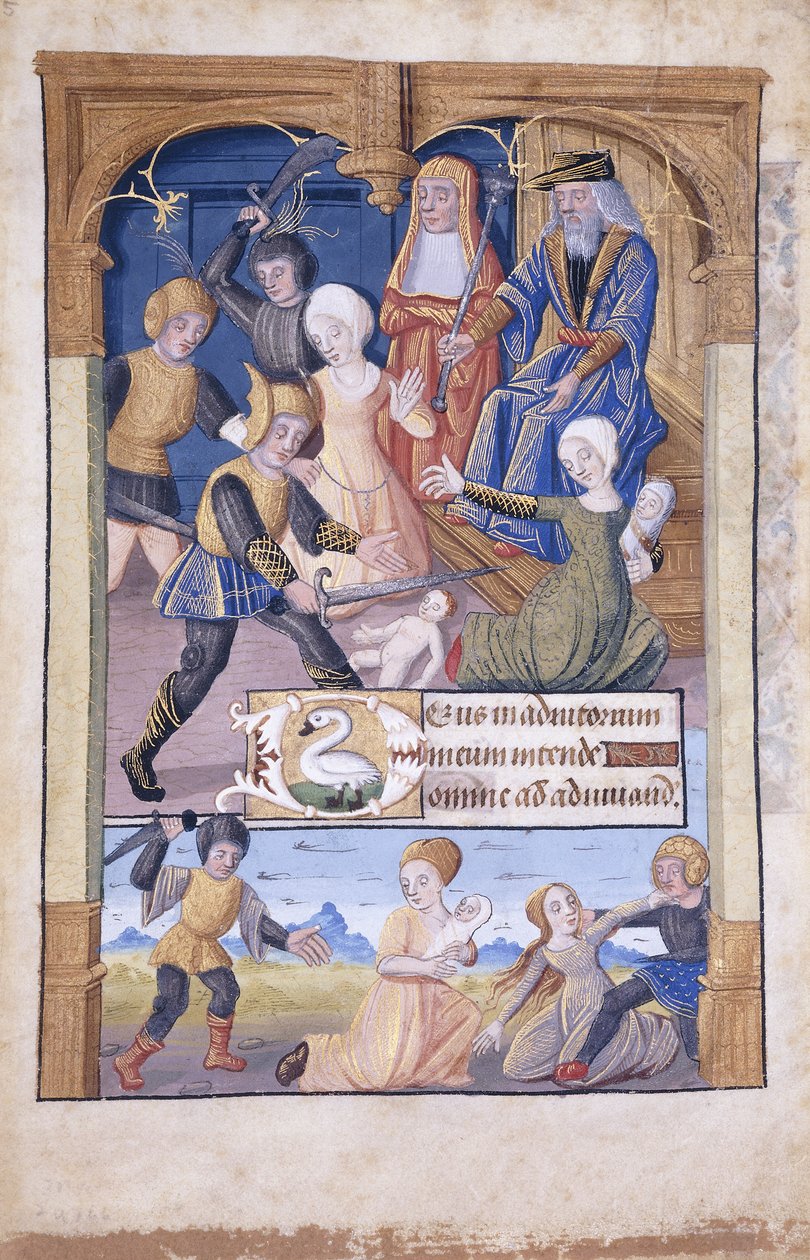 DEus in adiutorium
meum intende
omine ad adiuuand.